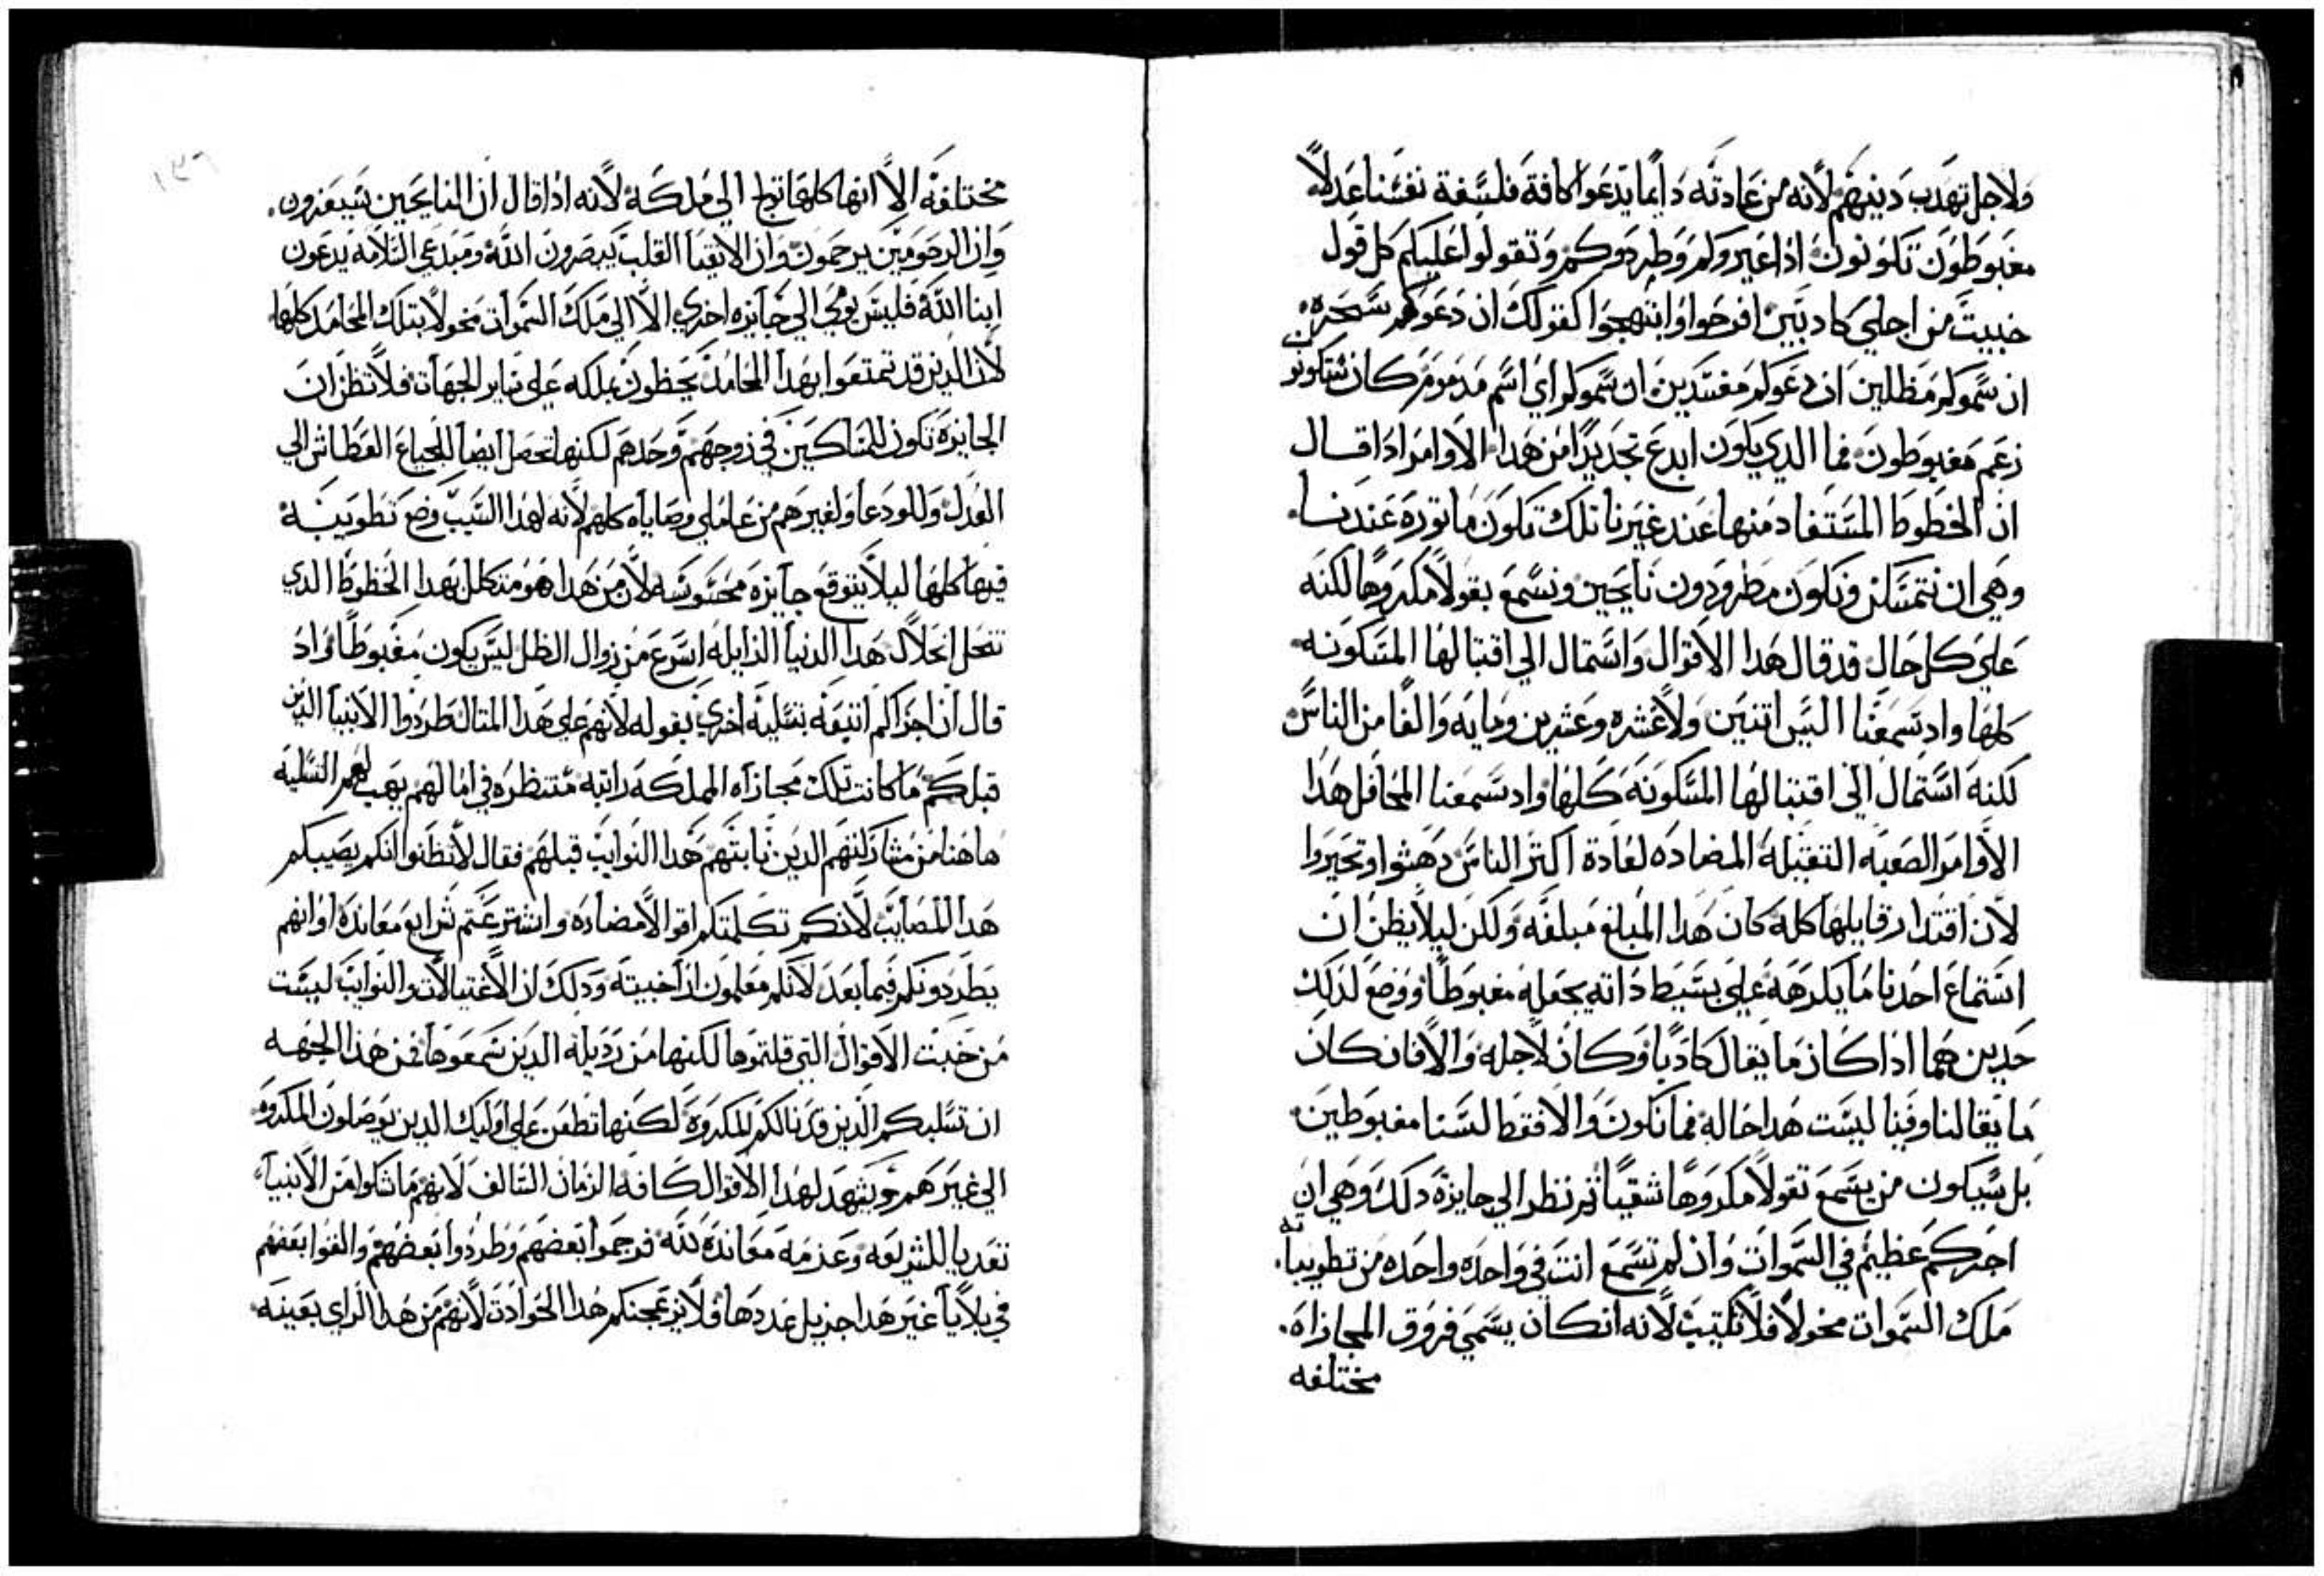 ولاجل تهدب دينهم لانه من عادته دايما يدعوا كافة فلسفة نفسنا عدلا
مغبوطون تكونون اذا عيروكم وطردوكم وتقولوا عليكم كل قول
خبيث من اجلي كادبين افرحوا وابتهجوا كقولك ان دعوكم سحره
ان سموكم مظلين ان دعوكم مفسدين ان سموكم اي اسم مدموم كان ستكونون
زعم مغبوطون فما الدي يكون ابدع تجديدا من هدا الاوامر ادا قال
ان الخطوط المستفاد منها عند غيرنا تلك تكون ماتوره عندنا
وهي ان نتمسكن ونكون مطرودون نايحين ونسمع بقولا مكروها لكنه
علي كل حال قد قال هدا الاقوال واستمال الي اقتبالها المسكونه
كلها واد سمعنا اليس اتنين ولا عشره وعشرين ومايه والفا من الناس
لكنه استمال الي اقتبالها المسكونه كلها واد سمعنا المحافل هدا
الاوامر الصعبه التقيله المضاده لعادة اكتر الناس دهشوا وتحيروا
لان اقتدار قايلها كله كان هدا المبلغ مبلغه ولكن ليلا يظن ان
استماع احدنا ما يكرهه علي بسيط داته يجعله مغبوطا ووضع لدلك
حدين هما ادا كان ما يقال كادبا وكان لاجله والا فان كان
ما يقال لنا وفينا ليست هدا حاله فما نكون والا فقط لسنا مغبوطين
بل سيكون من يسمع تقولا مكروها شقيا تم نظر الي جايزة دلك وهي ان
اجركم عظيم في السموات وان لم تسمع انت في واحده واحده من تطويباته
ملك السموات مخولا فلا تكتيب لانه انكان يسمي فروق المجازاه
مختلفه
مختلفه الا انها كلها تول الي ملكه لانه ادا قال ان النايحين سيعزون
وان الرحومين يرحمون وان الانقيا القلب يبصرون الله ومبدعي السلامه يدعون
ابنا الله فليس يومي الي جايزه اخري الا الي ملك السموات مخولا بتلك المحامد كلها
لان الدين قد تمتعوا بهدا المحامد يحظون بملكه علي ساير الجهات فلا تظن ان
الجايزه تكون للمساكين في روحهم وحدهم لكنها تحصل ايضا للجياع العطاش الي
العدل وللودعا ولغيرهم من عاملي وصاياه كلهم لانه لهدا السبب وضع تطويبه
فيها كلها ليلا يتوقع جايزه محسوسه لان من هدا هو متكلل بهدا الخطوط الدي
تنحل انحلال هدا الدنيا الزايله اسرع من زوال الظل ليس يكون مغبوطا واد
قال ان اجركم اتبعه بتسليه اخري بقوله لانهم علي هدا المتال طردوا الانبيا الدين
قبلكم ما كانت تلك مجازاه المملكه راتبه منتظره في امالهم يهب لهم التسليه
هاهنا من مشاركتهم الدين نابتهم هدا النوايب قبلهم فقال لا تظنوا انكم يصيبكم
هدا المصايب لانكم تكلمتكم اقوالا مضاده واشترعتم شرايع معانده او انهم
يطردونكم فيما بعد لانكم معلمون ازا خبيته ودلك ان الاغتيالات والنوايب ليست
من خبت الاقوال التي قلتموها لكنها من رديلة الدين سمعوها فمن هذا الجهه
ان تسلبكم الدين قد نالكم المكروه لكنها تطعن علي اوليك الدين يوصلون المكروه
الي غيرهم ويشهد لهدا الاقوال كافه الزمان السالف لانهم ما شكوا من الانبيا
تعديا للشريعه وعدمه معاندة لله فرجموا بعضهم وطردوا بعضهم والقوا بعضهم
في بلايا غير هدا جزيل عددها فلا يزعجنكم هدا الحوادت لانهم من هدا الراي بعينه